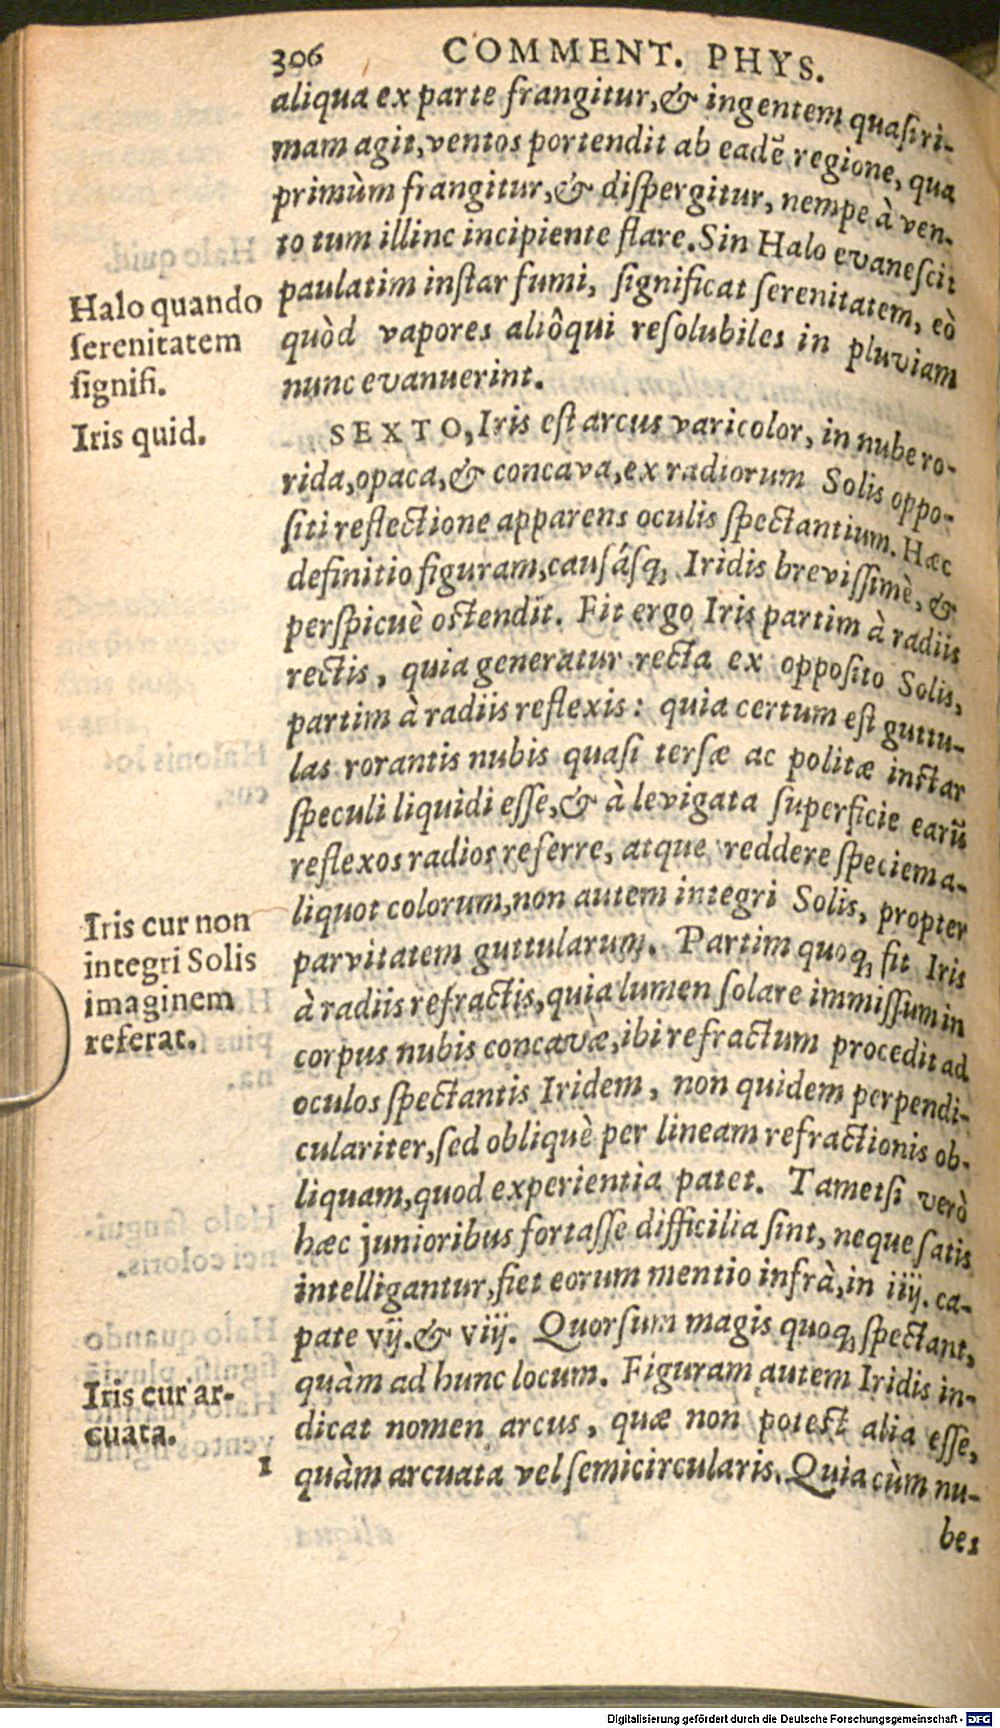 306 COMMENT. PHYS.
aliqua ex parte frangitur, & ingentem quasi ri-
mam agit, ventos portendit ab eadē regione, qua
primùm frangitur, & dispergitur, nempe à ven-
to tum illinc incipiente flare. Sin Halo evanescit
paulatim instar fumi, significat serenitatem, eò
quòd vapores aliôqui resolubiles in pluviam
nunc evanuerint.
Halo quando
serenitatem
signifi.
Iris quid.
SEXTO, Iris est arcus varicolor, in nube ro-
rida, opaca, & concava, ex radiorum Solis oppo-
siti reflectione apparens oculis spectantium. Hæc
definitio figuram, causásq; Iridis brevissimè, &
perspicuè ostendit. Fit ergo Iris partim à radiis
rectis, quia generatur recta ex opposito Solis,
partim à radiis reflexis: quia certum est guttu-
las rorantis nubis quasi tersæ ac politæ instar
speculi liquidi esse, & à levigata superficie earū
reflexos radios referre, atque reddere speciem a-
liquot colorum, non autem integri Solis, propter
parvitatem guttularum. Partim quoq; fit Iris
à radiis refractis, quia lumen solare immissum in
corpus nubis concavæ, ibi refractum procedit ad
oculos spectantis Iridem, non quidem perpendi-
culariter, sed obliquè per lineam refractionis ob-
liquam, quod experientia patet. Tametsi verò
hæc junioribus fortasse difficilia sint, neque satis
intelligantur, fiet eorum mentio infrà, in iiij. ca-
pate vij. & viij. Quorsum magis quoq; spectant,
quàm ad hunc locum. Figuram autem Iridis in-
dicat nomen arcus, quæ non potest alia esse,
quàm arcuata vel semicircularis. Quia cùm nu-
bes
Iris cur non
integri Solis
imaginem
referat.
Iris cur ar-
cuata.
1
Digitalisierung gefördert durch die Deutsche Forschungsgemeinschaft - DFG